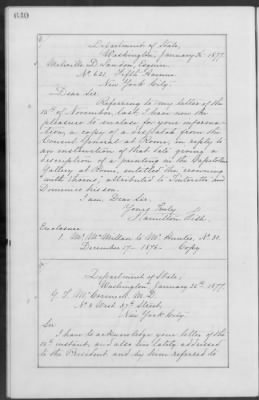 630
Department of State,
Washington, January 1877.
Melville D. Landon, Esquire,
No. 621, Fifth Avenue
New York City.
Dear Sir:
Referring to my letter of the
of November, last, I have now the
pleasure to enclose for your informa-
tion, a copy of a despatch from the
Consul General at Rome, in reply to
an instruction of that date giving a
description of a painting in the Capitoline
Gallery at Rome, entitled the crowning
with thorns, attributed to Tintoretto and
Domenico his son.
I am, Dear Sir,
Yours truly
Hamilton Fish.
Enclosure
1. Mr. McMillan to Mr. Hunter, No.
December 1876. Copy
Department of State,
Washington January 1877.
M.D.
No. 2 West Street,
New York City.
Sir
I have to acknowledge your letter of the
instant, and also one lately addressed
to the President and by him referred to